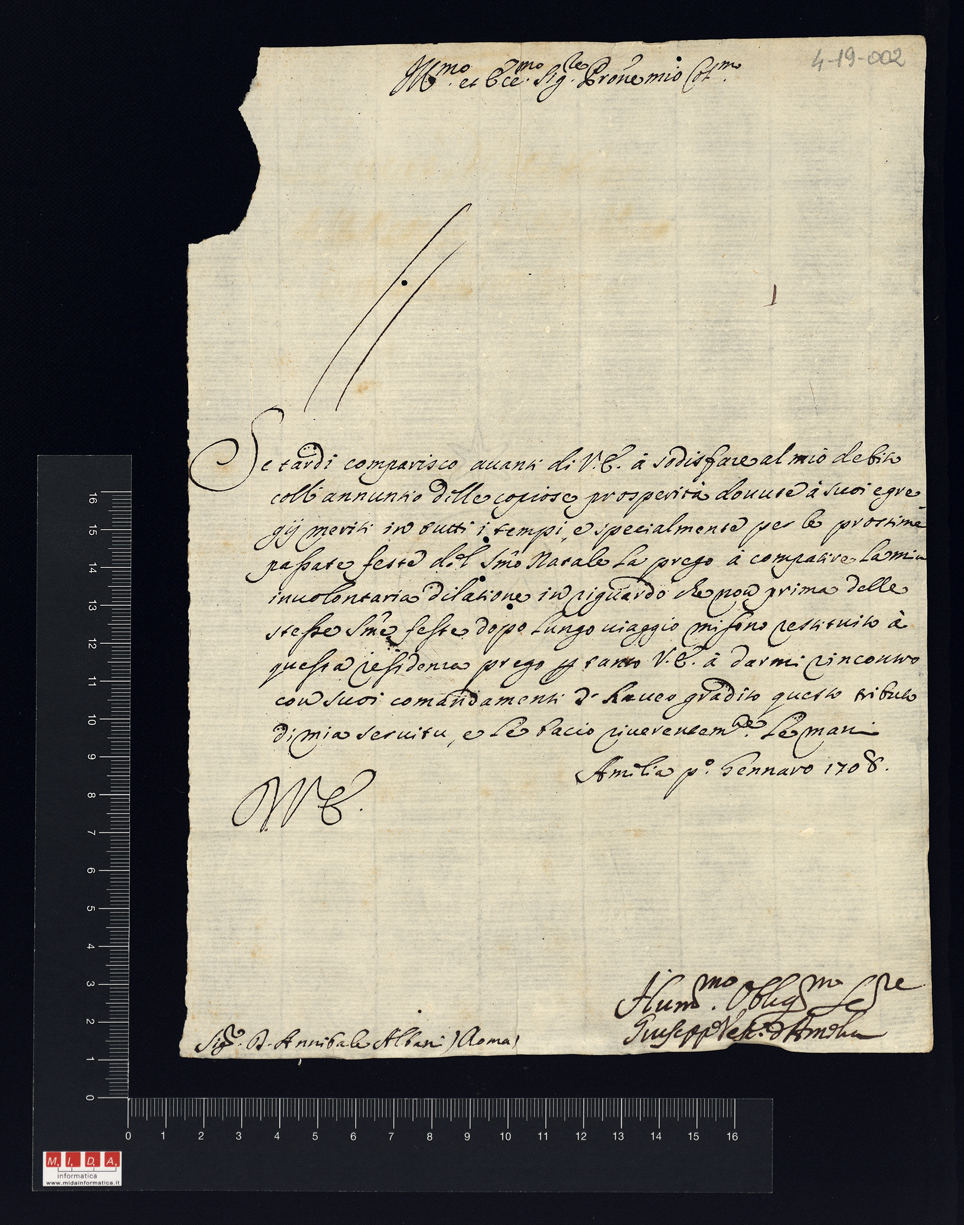 4-19-002
Ill.mo et Ecc.mo Sig.re Prone mio Col.mo
Se tardi comparisco auanti di V.E. à sodisfare al mio debito
coll'annuntio delle copiose prosperità douute à suoi egre
gij meriti in tutti i tempi, e specialmente per le prossime
passate feste del S.mo Natale La prego à compatire La mia
inuolontaria dilatione in riguardo che non prima delle
stesse S.me feste dopo lungo uiaggio mi sono restituito à
questa residenza prego p tanto V.E. à darmi rincontro
con suoi comandamenti d'hauer gradito questo tributo
di mia seruitu, e Le bacio riuerentem.te Le mani
Amelia p.o Gennaro 1708.
V E.
Hum.mo Oblig.mo Se.re
Giuseppe Vesc.o d'Amelia
Sig.r D. Annibale Albani) Roma)
16
15
14
13
12
11
10
9
8
7
6
5
4
3
2
1
0
0 1 2 3 4 5 6 7 8 9 10 11 12 13 14 15 16
M. I. D. A.
informatica
www.midainformatica.it